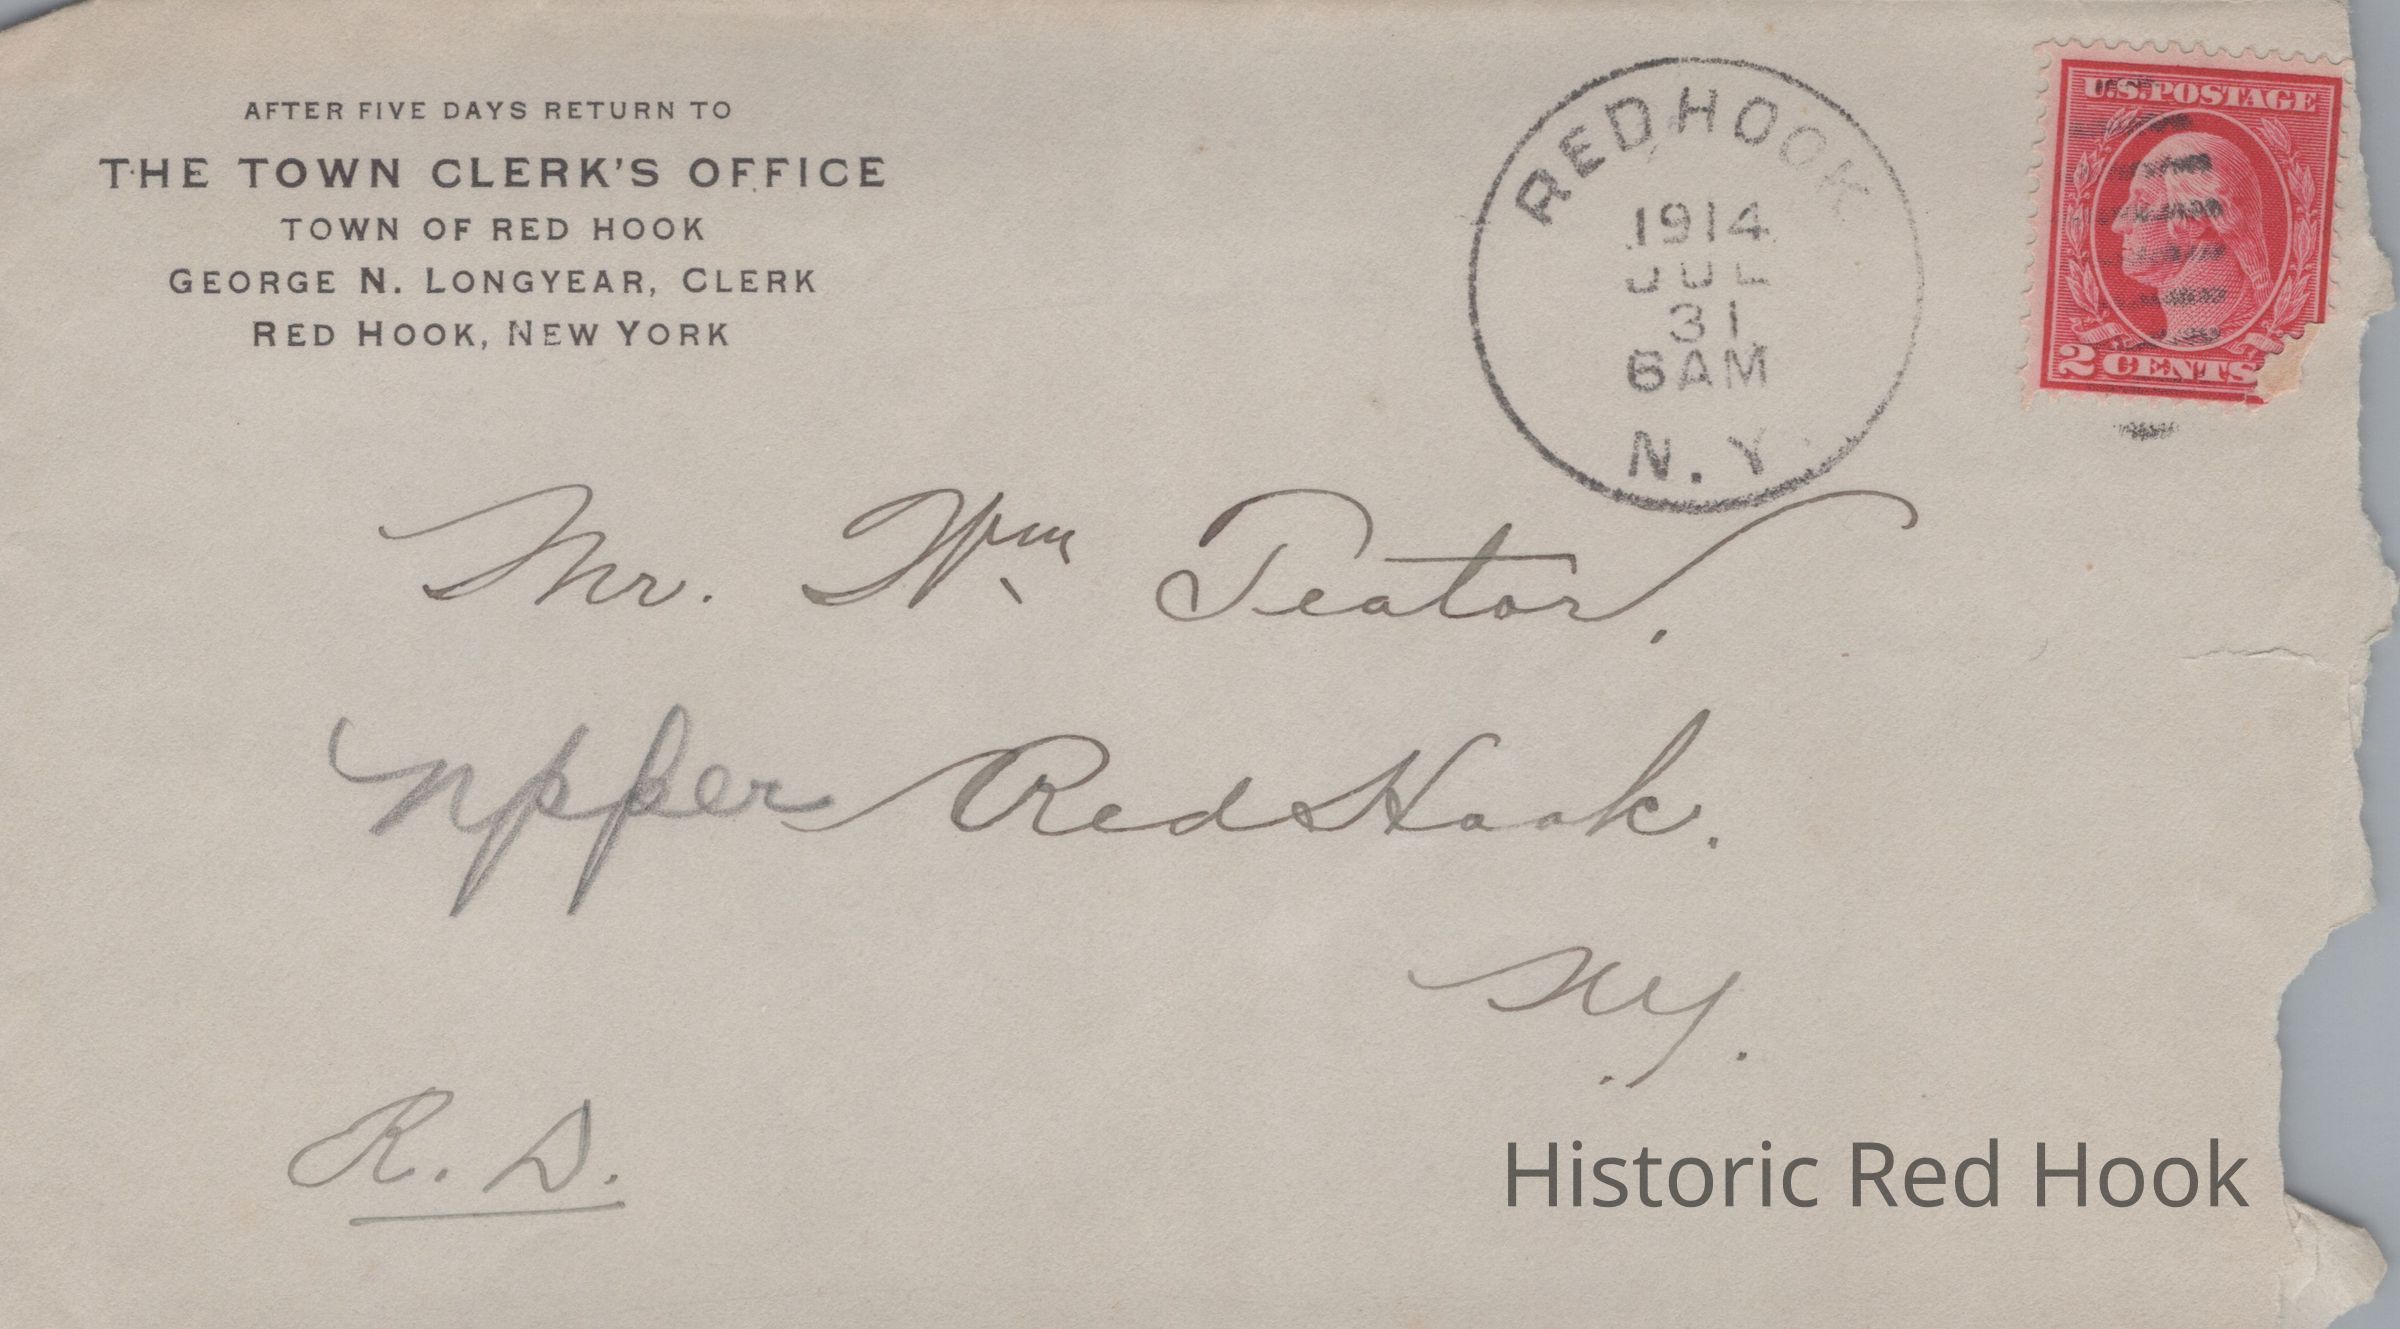 AFTER FIVE DAYS RETURN TO
THE TOWN CLERK'S OFFICE
TOWN OF RED HOOK
GEORGE N. LONGYEAR, CLERK
RED HOOK, NEW YORK
RED HOOK
1914
JUL
31
6AM
N.Y.
U.S. POSTAGE
2 CENTS 2
Mr. Wm Teator,
Upper Red Hook.
N.Y.
R. D.
Historic Red Hook